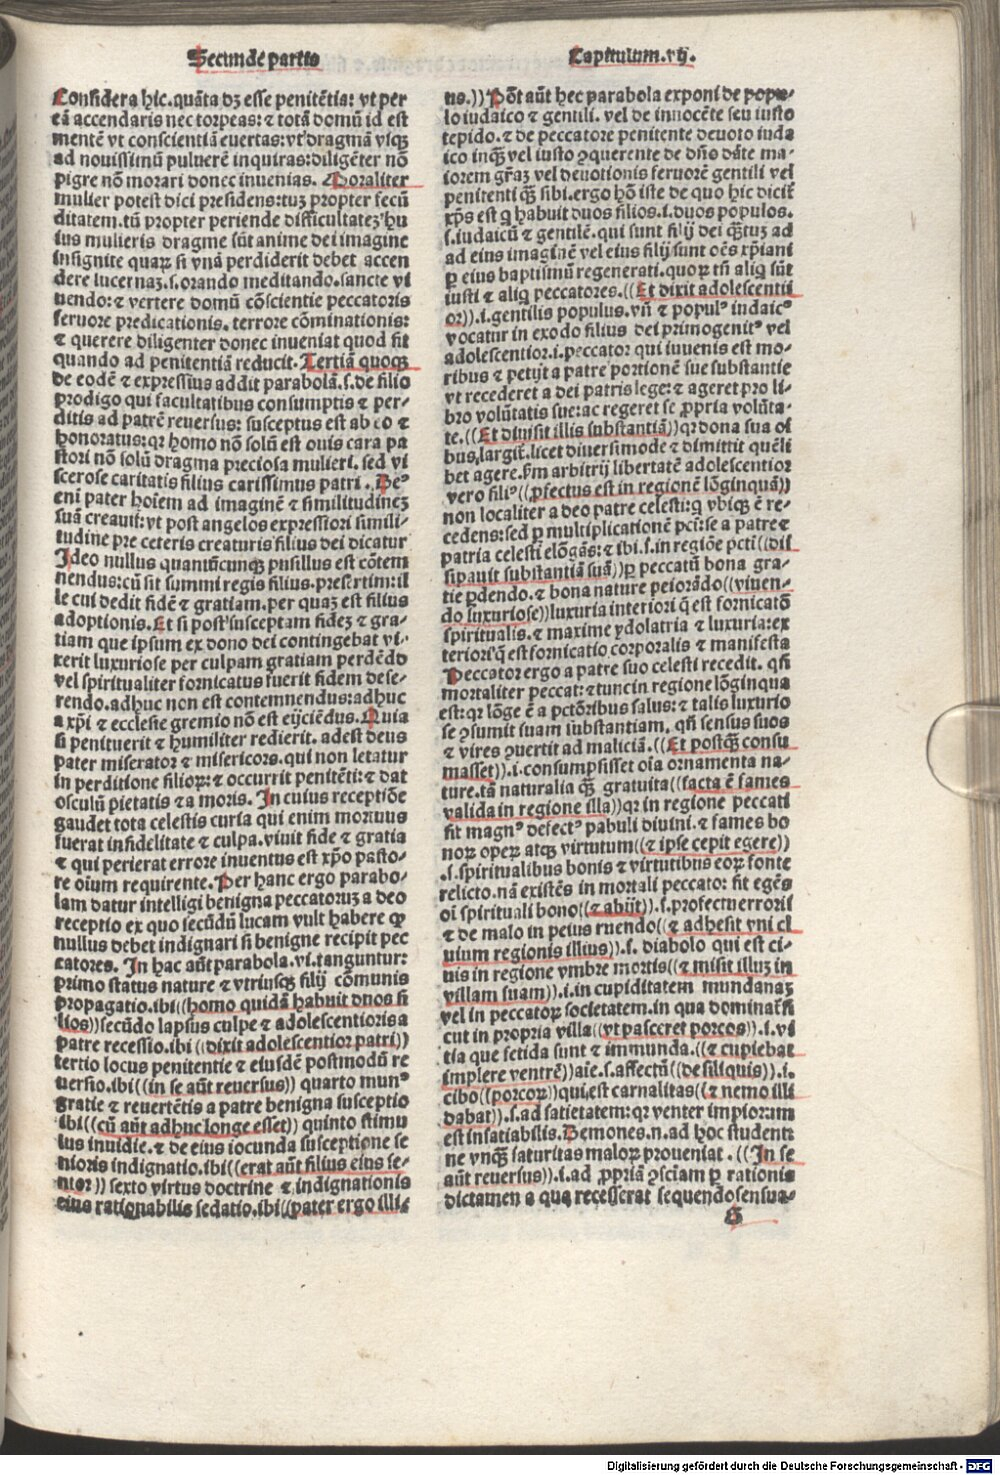 Secunde partis
Capitulum.vij.
Considera hic.quāta dȝ esse penitētia: vt per
eā accendaris nec torpeas: ⁊ totā domū id est
mentē vt conscientiā euertas: vt dragmā vsqȝ
ad nouissimū puluerē inquiras: diligēter nō
pigre nō morari donec inuenias. Moraliter
mulier potest dici presidens: tuȝ propter fecū
ditatem. tū propter periende difficultateȝ hu
ius mulieris dragme sūt anime dei imagine
insignite quaꝝ si vnā perdiderit debet accen
dere lucernaȝ.s.orando meditando.sancte vi
uendo: ⁊ vertere domū cōscientie peccatoris
feruore predicationis. terrore cōminationis:
⁊ querere diligenter donec inueniat quod fit
quando ad penitentiā reducit. Tertiā quoqȝ
de eodē ⁊ expressius addit parabolā.s.de filio
prodigo qui facultatibus consumptis ⁊ per-
ditis ad patrē reuersus: susceptus est ab eo ⁊
honoratus: qꝛ homo nō solū est ouis cara pa
stori nō solū dragma preciosa mulieri. sed vi
scerose caritatis filius carissimus patri. Deꝰ
eni pater hoīem ad imaginē ⁊ similitudineȝ
suā creauit: vt post angelos expressiori simili-
tudine pre ceteris creaturis filius dei dicatur
Ideo nullus quantūcunqȝ pusillus est cōtem
nendus: cū sit summi regis filius. presertim: il
le cui dedit fidē ⁊ gratiam. per quaȝ est filius
adoptionis. Et si post insceptam fideȝ ⁊ gra-
tiam que ipsum ex dono dei contingebat vi-
xerit luxuriose per culpam gratiam perdēdo
vel spiritualiter fornicatus fuerit fidem dese-
rendo. adhuc non est contemnendus: adhuc
a xp̄i ⁊ ecclesie gremio nō est eijciēdus. Quia
si penituerit ⁊ humiliter redierit. adest deus
pater miserator ⁊ misericors. qui non letatur
in perditione filioꝝ: ⁊ occurrit penitēti: ⁊ dat
osculū pietatis ⁊ a moris. In cuius receptiōe
gaudet tota celestis curia qui enim mortuus
fuerat infidelitate ⁊ culpa. viuit fide ⁊ gratia
⁊ qui perierat errore inuentus est xp̄o pasto-
re oīum requirente. Per hanc ergo parabo-
lam datur intelligi benigna peccatoruȝ a deo
receptio ex quo secūdū lucam vult habere qꝙ
nullus debet indignari si benigne recipit pec
catores. In hac aūt parabola.vi.tanguntur:
primo status nature ⁊ vtriusqȝ filij cōmunis
propagatio.ibi((homo quidā habuit duos fi
lios))secūdo lapsus culpe ⁊ adolescentioris a
patre recessio.ibi((dixit adolescentior patri))
tertio locus penitentie ⁊ eiusdē postmodū re
uersio.ibi((in se aūt reuersus)) quarto munꝰ
gratie ⁊ reuertētis a patre benigna susceptio
ibi((cū aūt adhuc longe esset)) quinto stimu
lus inuidie. ⁊ de eius iocunda susceptione se
nioris indignatio.ibi((erat aūt filius eius se-
nior)) sexto virtus doctrine ⁊ indignationis
eius rationabilis sedatio.ibi((pater ergo illi-
us.))Pōt aūt hec parabola exponi de popu-
lo iudaico ⁊ gentili. vel de innocēte seu iusto
tepido. ⁊ de peccatore penitente deuoto iuda
ico inqȝ vel iusto ꝯquerente de dn̄o dāte ma-
iorem gr̄aȝ vel deuotionis feruorē gentili vel
penitenti qȝ̄ sibi. ergo hō iste de quo hic dicit̄
xp̄s est q̇ habuit duos filios.i.duos populos.
.s.iudaicū ⁊ gentilē. qui sunt filij dei qȝ̄tuȝ ad
ad eius imaginē vel eius filij sunt oēs xp̄iani
ꝑ eius baptismū regenerati. quoꝝ tn̄ aliq̇ sūt
iusti ⁊ aliq̇ peccatores.((Et dixit adolescenti
or)).i.gentilis populus. vn̄ ⁊ populꝰ iudaicꝰ
vocatur in exodo filius dei primogenitꝰ vel
adolescentior.i.peccator qui iuuenis est mo-
ribus ⁊ petijt a patre portionē sue substantie
vt recederet a dei patris lege: ⁊ ageret pro li-
bro volūtatis sue: ac regeret se ꝓpria volūta-
te.((Et diuisit illis substantiā))qꝛ dona sua oī
bus largit̄. licet diuersimode ⁊ dimittit quēli
bet agere. ẜm arbitrij libertatē adolescentior
vero filiꝰ((ꝓfectus est in regionē lōginquā))
non localiter a deo patre celesti: q̇ vbiqȝ ē re-
cedens: sed ꝑ multiplicationē pctī: se a patre ⁊
patria celesti elōgās: ⁊ ibi.s.in regiōe pcti((dis
sipauit substantiā suā))ꝑ peccatū bona gra-
tie ꝑdendo. ⁊ bona nature peiorādo((viuen-
do luxuriose))luxuria interiori q̄ est fornicatō
spiritualis. ⁊ maxime ydolatria ⁊ luxuria: ex
teriori q̄ est fornicatio corporalis ⁊ manifesta
Peccator ergo a patre suo celesti recedit. qn̄
mortaliter peccat: ⁊ tunc in regione lōginqua
est: qꝛ lōge ē a pctōribus salus: ⁊ talis luxurio
se ꝯsumit suam substantiam. qn̄ sensus suos
⁊ vires ꝯuertit ad maliciā.((Et postqȝ̄ consu
masset)).i.consumpsisset oīa ornamenta na-
ture. tā naturalia qȝ̄ gratuita((facta ē fames
valida in regione illa))qꝛ in regione peccati
fit magnꝰ defectꝰ pabuli diuini. ⁊ fames bo
noꝝ opeꝝ atqȝ virtutum((⁊ ipse cepit egere))
.s.spiritualibus bonis ⁊ virtutibus eoꝝ fonte
relicto. nā existēs in mortali peccato: fit egēs
oī spirituali bono((⁊ abijt)).s.profectu erroris
⁊ de malo in peius ruendo((⁊ adhesit vni ci
uium regionis illius)).s. diabolo qui est ci-
uis in regione vmbre mortis((⁊ misit illuȝ in
villam suam)).i.in cupiditatem mundanaȝ
vel in peccatoꝝ societatem. in qua dominat̄ si
cut in propria villa((vt pasceret porcos)).i.vi
tia que fetida sunt ⁊ immunda.((⁊ cupiebat
implere ventrē))aīe.s.affectū((de siliquis)).i.
cibo((porcoꝝ))qui est carnalitas((⁊ nemo illi
dabat)).s.ad satietatem: qꝛ venter impiorum
est insatiabilis. Demones.n.ad hoc student:
ne vnqȝ̄ saturitas maloꝝ proueniat. ((In se
aūt reuersus)).i.ad ꝓpriā ꝯsciam ꝑ rationis
dictamen a qua recesserat sequendo sensua-
G
Digitalisierung gefördert durch die Deutsche Forschungsgemeinschaft - DFG